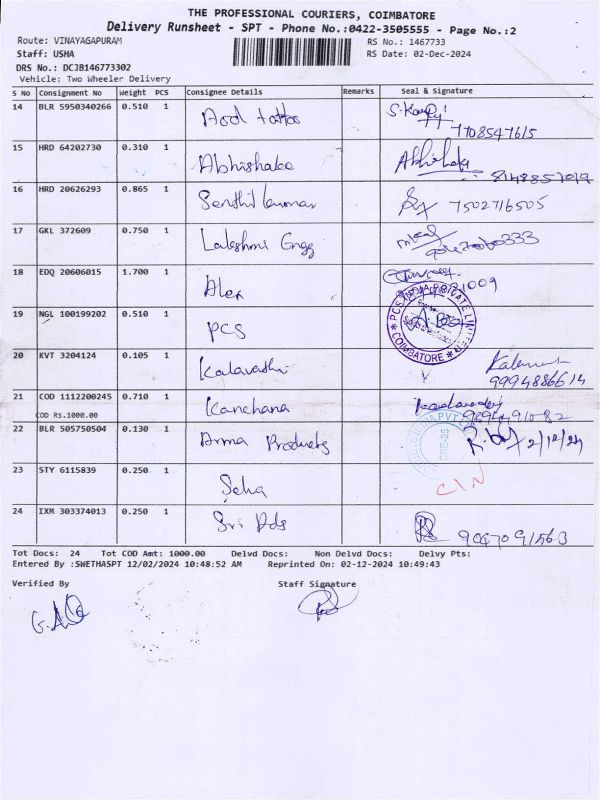 THE PROFESSIONAL COURIERS, COIMBATORE
Delivery Runsheet - SPT - Phone No.:0422-3505555 - Page No.:2
Route: VINAYAGAPURAM RS No.: 1467733
Staff: USHA RS Date: 02-Dec-2024
DRS No.: DCJB146773302
Vehicle: Two Wheeler Delivery
S No Consignment No Weight PCS Consignee Details Remarks Seal & Signature
14 BLR 5950340266 0.510 1 tattoo
7708547615
15 HRD 64202730 0.310 1 Abhishake
16 HRD 20626293 0.865 1 Senthil kumar 7502716505
17 GKL 372609 0.750 1 Lakshmi Engg
18 EDQ 20606015 1.700 1 Alex
19 NGL 100199202 0.510 1 PCS
COIMBATORE
20 KVT 3204124 0.105 1 Kalavathi
9994886614
21 COD 1112200245 0.710 1 Kanchana
COD RS.1000.00
22 BLR 505750504 0.130 1 Amma Products 2/12/24
23 STY 6115839 0.250 1
24 IXM 303374013 0.250 1 Sri Ads 9047091563
Tot Docs: 24 Tot COD Amt: 1000.00 Delvd Docs: Non Delvd Docs: Delvy Pts:
Entered By :SWETHASPT 12/02/2024 10:48:52 AM Reprinted On: 02-12-2024 10:49:43
Verified By Staff Signature